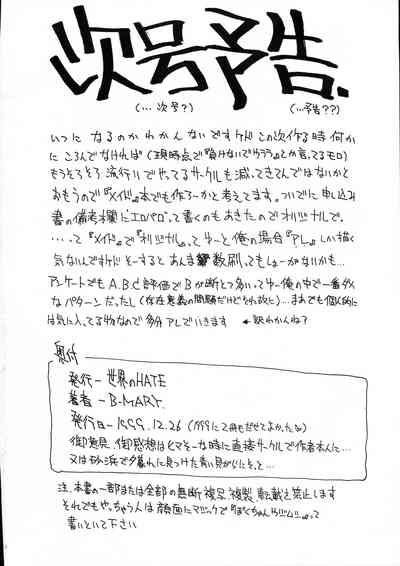 次号予告.
(… 次号?)
(… 予告??)
いつに なるのかわかんないですケド この次作る時 何か
に ころんでなければ (現時点で『負けないでサララ』とか言ってるモロ)
もうそろそろ 流行りでやってるサークルも減ってきてんではないかと
おもうので『メイド』本でも作ろーかと考えてます。ついでに 申し込み
書の備考欄にエロパロって書くのもあきたのでオリジナルで。
…って『メイド』で『オリジナル』ってゆーと俺の場合『アレ』しか描く
気ないんですけド そーすると あんま 数刷ってもしょーがないかも…
アンケートでもA.B.C評価でBが断とつ多いってゆー俺の中で一番ダメ
なパターンだったし (存在意義の問題だけどそれ故に) …まあでも個人的に
は気に入ってる物なので多分アレでいきます ←訳わかんね?
奥付
発行ー世界のHATE
著者ーB-MART.
発行日ー1999.12.26 (1999に7冊もだせてよかったな)
御意見、御感想はヒマそーな時に直接サークルで作者本人に…
又は砂浜で夕暮れに見つけた青い貝がらにそっと…
注.本書の一部または全部の無断複写、複製、転載を禁止します
それでもやっちゃう人は顔面にマジックで『ぼくちゃん
って
書いといて下さい